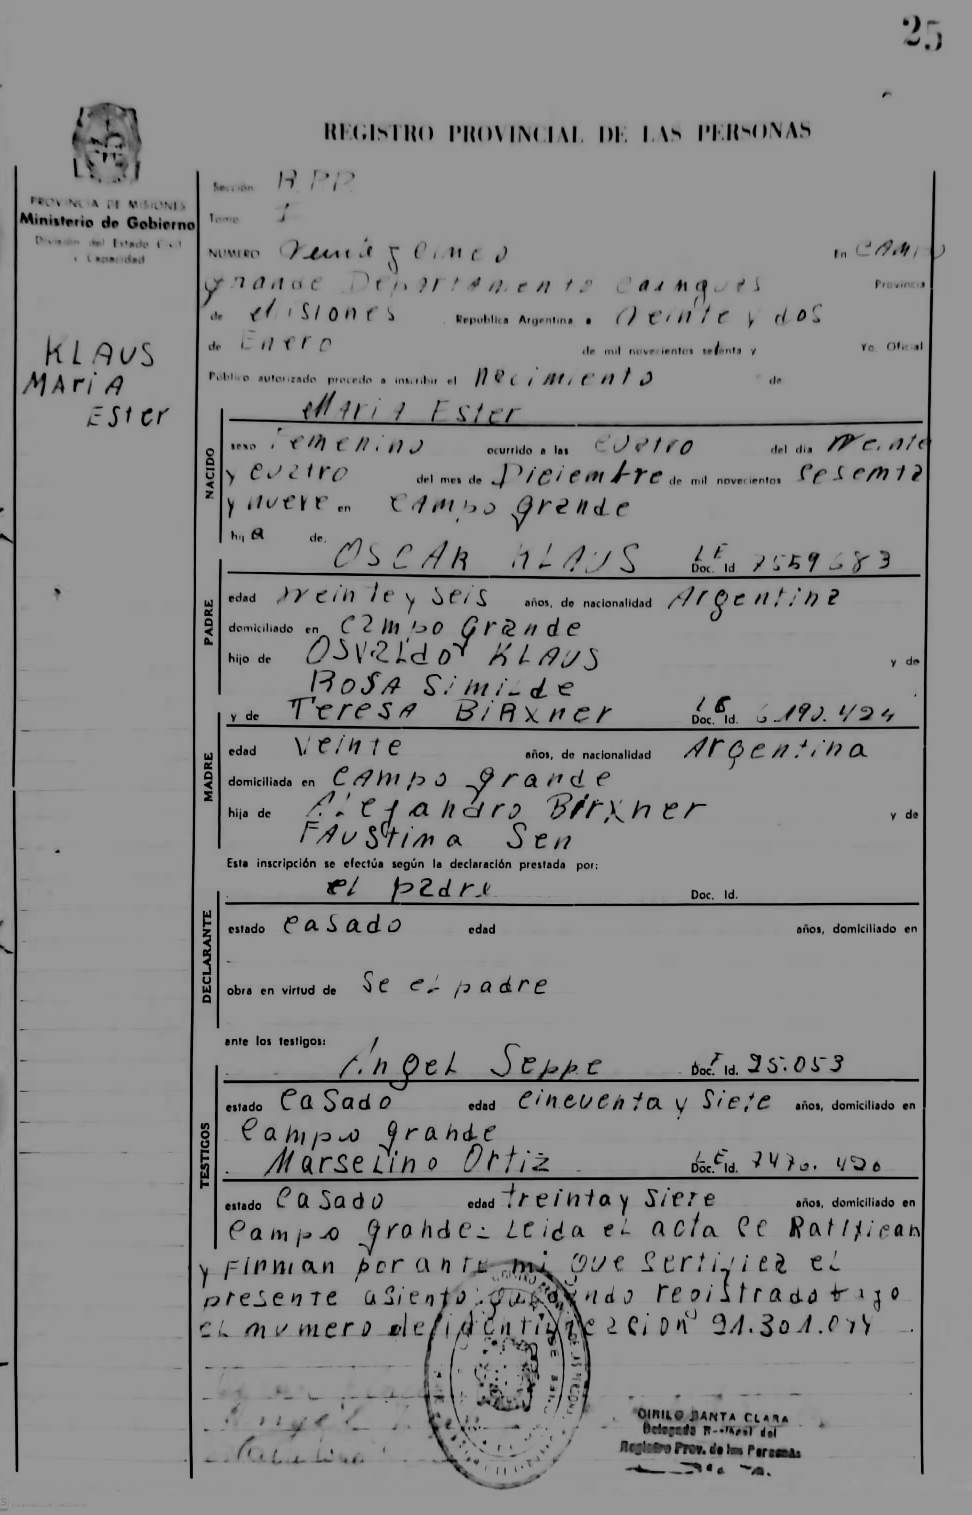 25
REGISTRO PROVINCIAL DE LAS PERSONAS
PROVINCIA DE MISIONES
Ministerio de Gobierno
División del Estado Civil
y Capacidad
KLAUS
MAriA
ESter
Sección RPP
Tomo I
NUMERO Veinte y Cinco En CAMPO
grande Departamento Cainguas Provincia
de Misiones República Argentina a Veinte y dos
de Enero de mil novecientos setenta y Yo, Oficial
Público autorizado procedo a inscribir el Necimiento de
MAriA Ester
NACIDO
sexo Femenino ocurrido a las cuatro del día Veinte
y cuatro del mes de Diciembre de mil novecientos Sesemta
y nueve en CAmpo grande
hija de. OSCAR KLAUS LE Doc. Id 7559683
PADRE
edad Veinte y Seis años, de nacionalidad Argentina
domiciliado en Campo Grande
hijo de OSValdo KLAUS y de
ROSA Similde
y de TereSA BIRXner Doc. Id. 6.190.424
MADRE
edad Veinte años, de nacionalidad Argentina
domiciliada en CAmpo grande
hija de Alejandro Birxner y de
FAUStina Sen
Esta inscripción se efectúa según la declaración prestada por:
el padre Doc. Id.
DECLARANTE
estado Casado edad años, domiciliado en
obra en virtud de Se el padre
ante los testigos:
Angel Seppe Doc. Id. 95.053
TESTIGOS
estado Casado edad Cincuenta y Siete años, domiciliado en
Campo grande
Marselino Ortiz LE Doc. Id. 7470.420
estado Casado edad treinta y Siete años, domiciliado en
Campo grande = Leida el acta Ce Ratifican
y Firman por ante mi que Sertifica el
presente asiento quedando registrado bajo
el numero de identificacion 21.301.074
CIRILO SANTA CLARA
Delegado Regional del
Registro Prov. de las Personas